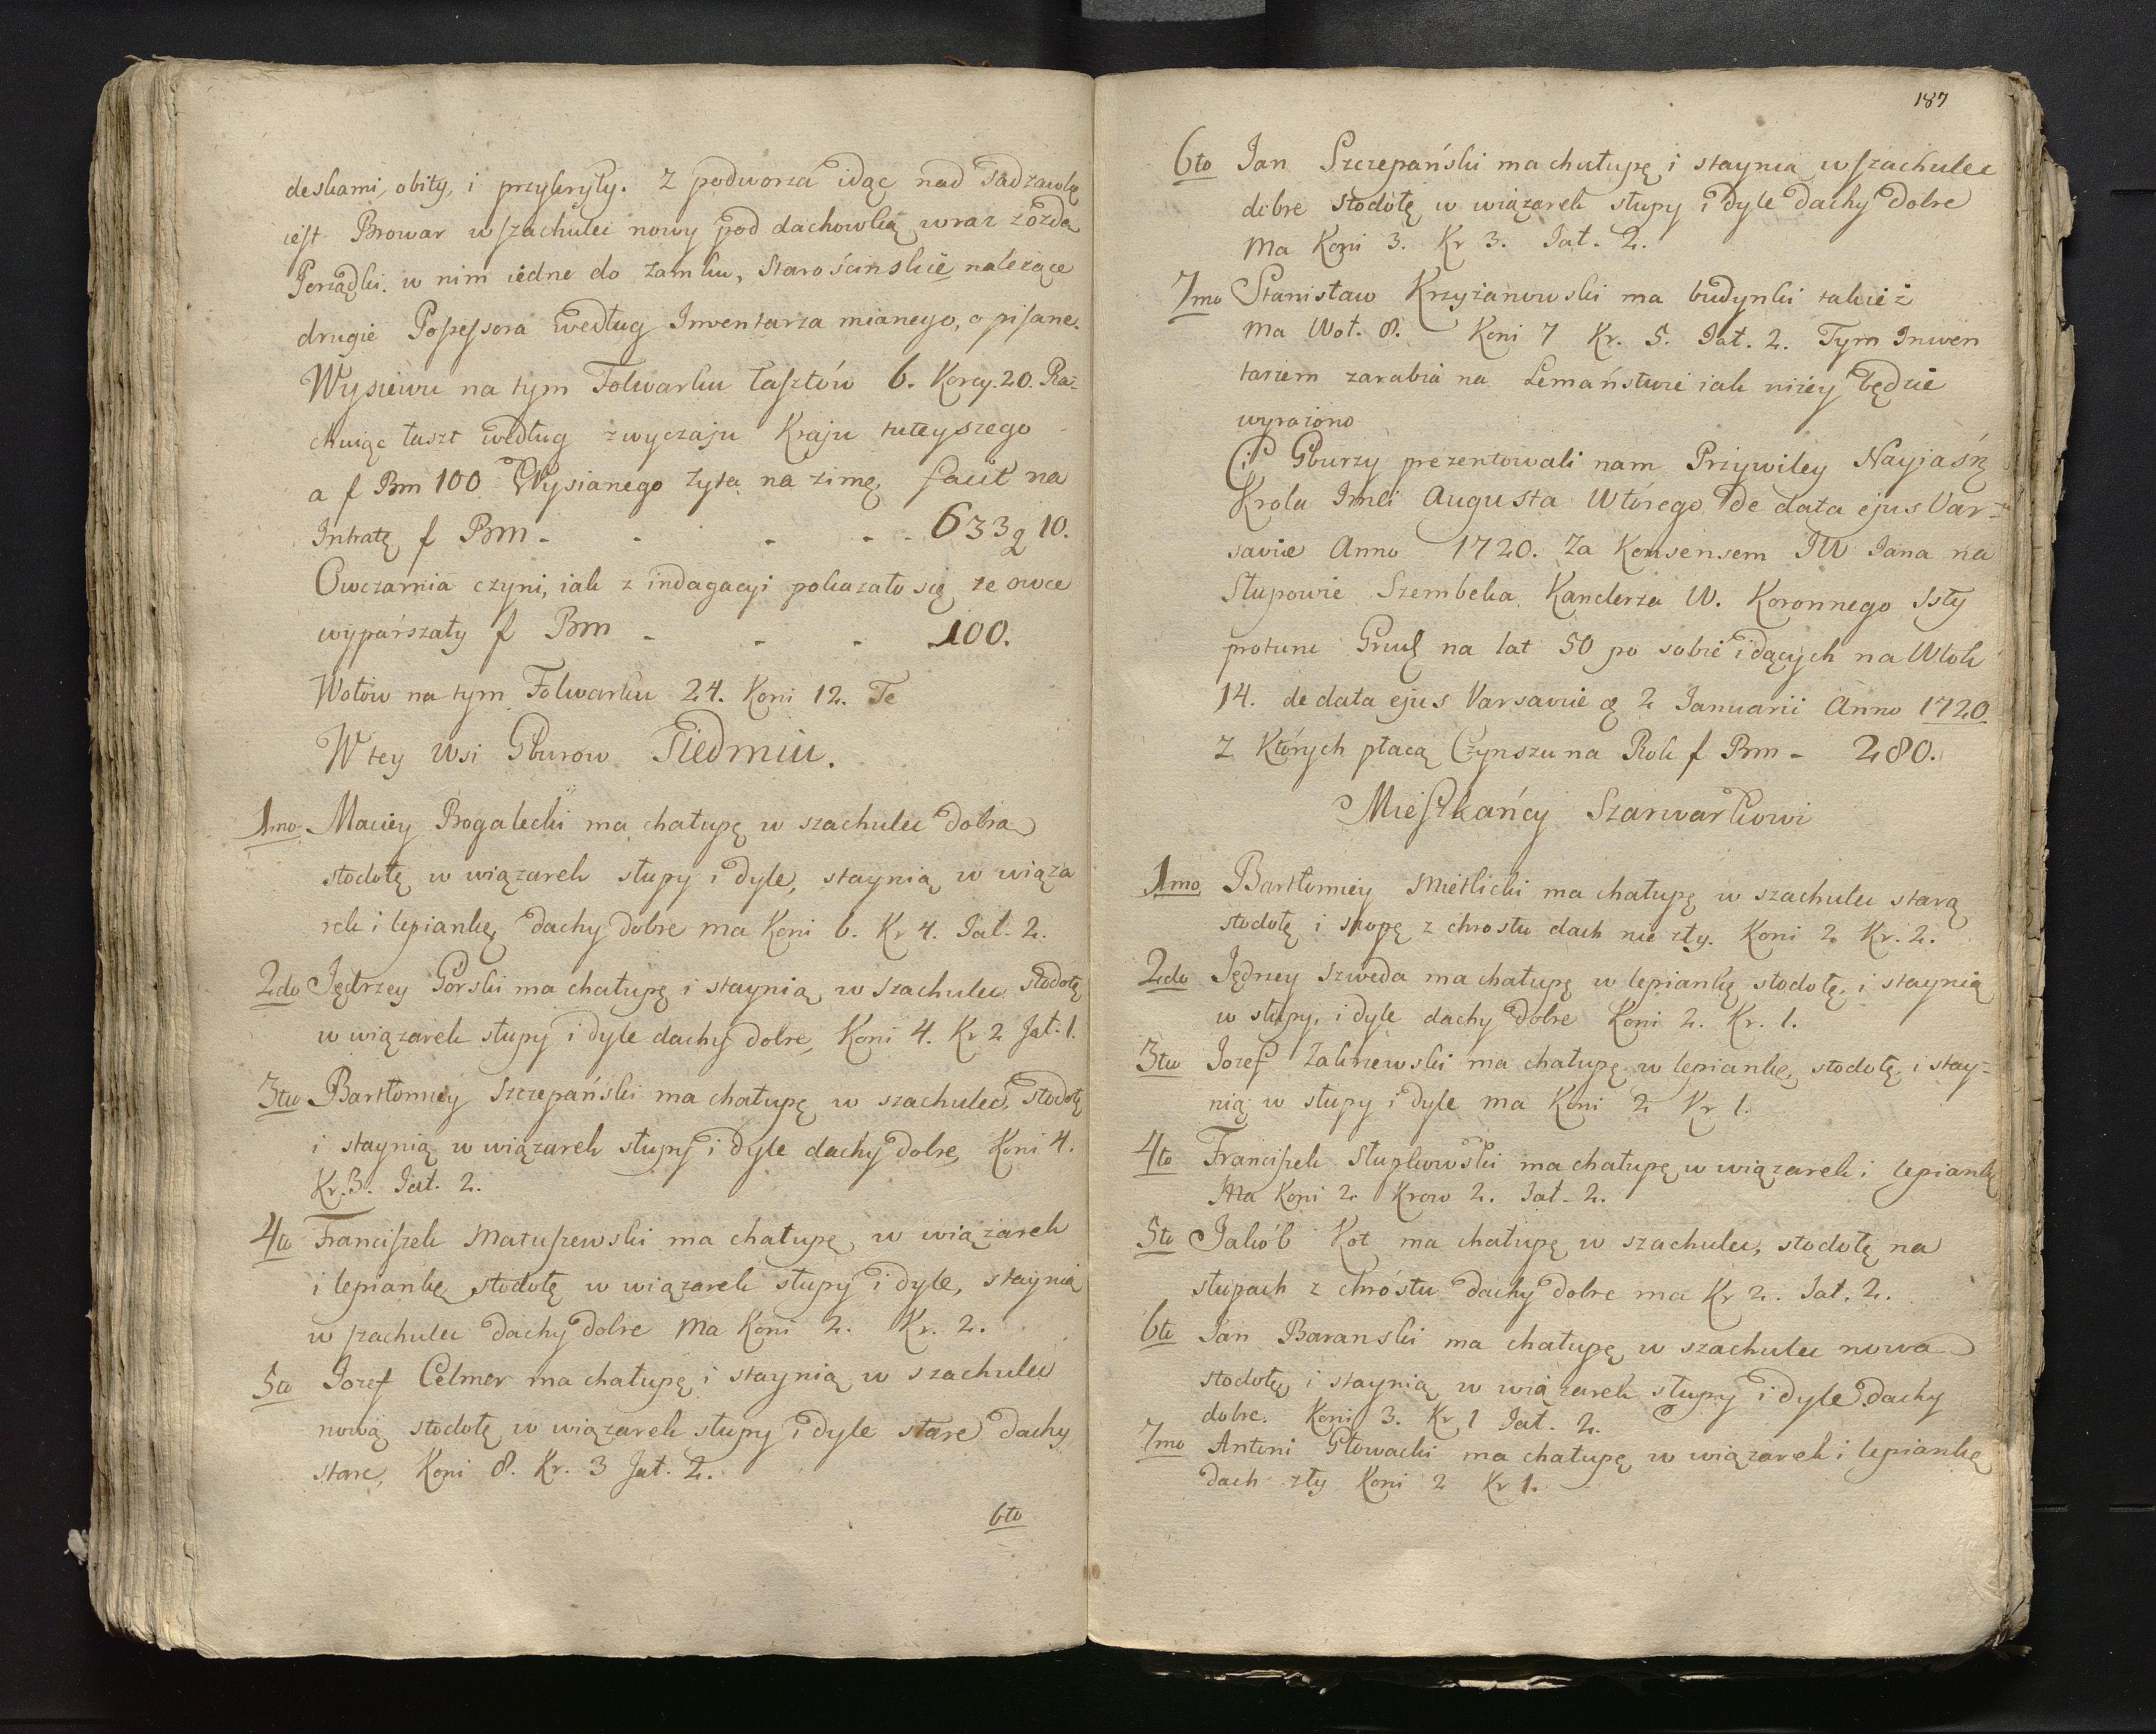 deskami, obity, i przykryty. Z podworza idąc nad Sadzawkę
iest Browar w szachulec nowy pod dachowką wraz z ozdą
Porządki w nim iedne do Zamku, Starościnskie należące
drugie Possessora według Inwentarza mianego, opisane.
Wysiewu na tym Folwarku Łasztów 6. Korcy. 20. Ra=
chuiąc łaszt według zwyczaju Kraju tuteyszego
a f Bm 100 Wysianego żyta na zimę, facit na
Intratę f Bm - - - - - 633 g 10.
Owczarnia czyni, iak z indagacyi pokazało się że owce
wyparszały f Bm - - - 100.
Wołow na tym Folwarku 24. Koni 12. Te
W tey Wsi Gburow Siedmiu.
1mo Maciey Rogalecki ma chałupę w szachulec dobrą
stodołę w wiązarek słupy i dyle, staynią w wiąza
rek i lepiankę, dachy dobre ma Koni 6. Kr 4. Jał. 2.
2do Jędrzey Górski ma chałupę i staynią w szachulec stodołę
w wiązarek słupy i dyle dachy dobre, Koni 4. Kr 2 Jał. 1.
3tio Bartłomiey Szczepański ma chałupę w szachulec, stodołę
i staynią w wiązarek słupy i dyle dachy dobre, Koni 4.
Kr. 3. Jał. 2.
4to Franciszek Matuszewski ma chałupę w wiązarek
i lepiankę, stodołę w wiązarek słupy i dyle, staynią
w szachulec dachy dobre Ma Koni 2. Kr. 2.
5to Jozef Celmer ma chałupę i staynią w szachulec
nową stodołę w wiązarek słupy i dyle stare dachy
stare, Koni 8. Kr. 3 Jał. 2.
6to
187
6to Jan Szczepański ma chałupę i staynią w szachulec
dobre stodołę w wiązarek słupy i dyle dachy dobre
Ma Koni 3. Kr 3. Jał. 2.
7mo Stanisław Krzyżanowski ma budynki takież
Ma Woł. 8. Koni 7 Kr. 5. Jał. 2. Tym Inwen
tarzem zarabia na Lemaństwie iak niżey będzie
wyrażono
Ciż Gburzy prezentowali nam Przywiley Nayjaśn
Krola Jmci Augusta Wtórego de data ejus Var=
saviæ Anno 1720. Za Konsensem JW Jana na
Słupowie Szembeka Kanclerza W. Koronnego Ssty
protunc Grudz na lat 50 po sobie idących na Włok
14. de data ejus Varsaviæ 2 Januarii Anno 1720
z Których płacą Czynszu na Rok f Bm - 280.
Mieszkańcy Szarwarkowi
1mo Bartłomiey Mietlicki ma chałupę w szachulec starą
stodołę i szopę z chrostu dach nie zły. Koni 2 Kr. 2.
2do Jędrzey Szweda ma chałupę w lepiankę stodołę, i staynią
w słupy, i dyle dachy dobre Koni 2. Kr. 1.
3tio Jozef Zakrzewski ma chałupę w lepiankę, stodołę, i stay=
nią w słupy i dyle ma Koni 2 Kr 1.
4to Franciszek Słupkowski ma chałupę w wiązarek i lepiankę
Ma Koni 2 Krow 2. Jał. 2.
5to Jakób Kot ma chałupę w szachulec, stodołę na
słupach z chróstu dachy dobre ma Kr 2. Jał. 2.
6to Jan Baranski ma chałupę w szachulec nową
stodołę i staynią w wiązarek słupy i dyle dachy
dobre. Koni 3. Kr 1 Jał. 2.
7mo Antoni Głowacki ma chałupę w wiązarek i lepiankę
dach zły Koni 2 Kr 1.